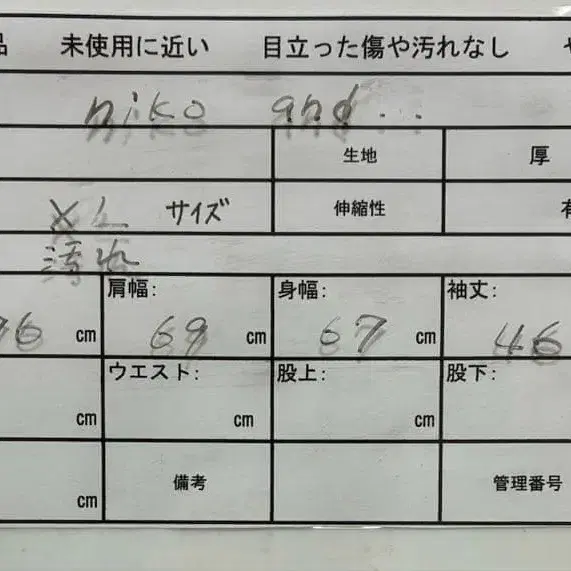 品 未使用に近い 目立った傷や汚れなし や
niko and...
生地 厚
XL サイズ 伸縮性 有
汚れ
肩幅: 身幅: 袖丈:
96 cm 69 cm 67 cm 46
ウエスト: 股上: 股下:
cm cm cm
備考 管理番号
cm